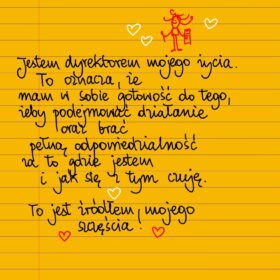 Jestem dyrektorem mojego życia.
To oznacza, że
mam w sobie gotowość do tego,
żeby podejmować działanie
oraz brać
pełną odpowiedzialność
za to gdzie jestem
i jak się z tym czuję.
To jest źródłem mojego
szczęścia!